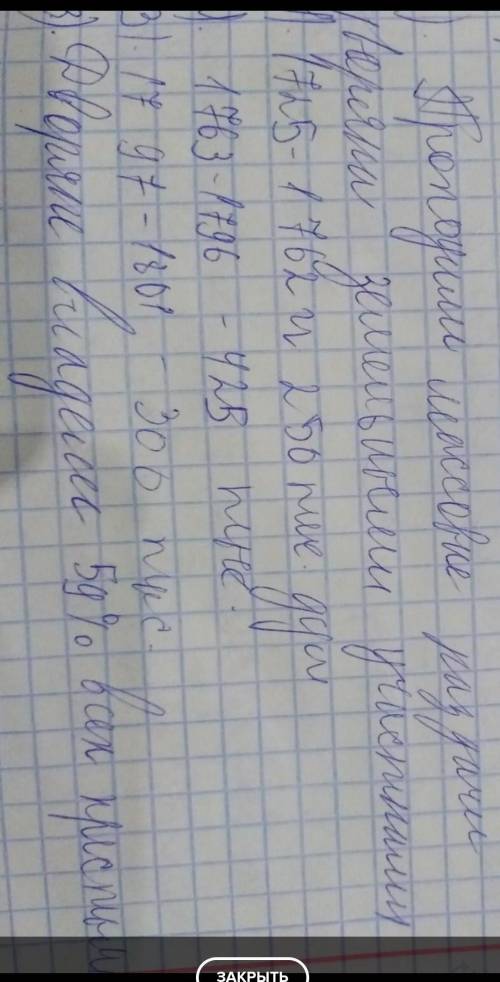 ). Проходили массовые раздачи
Дворянам земельными участками
1725-1762 гг 250 тыс. душ
). 1763-1796 - 425 тыс.
3). 1797-1801 - 300 тыс.
3). Дворяне владели 59% всех крестьян
ЗАКРЫТЬ